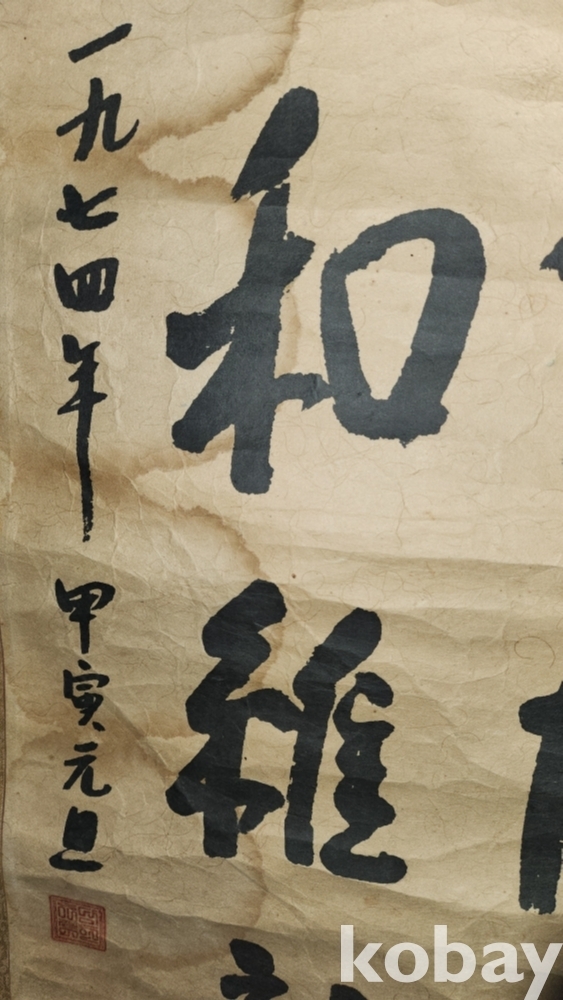 和維
一九七四年 甲寅元旦
kobay